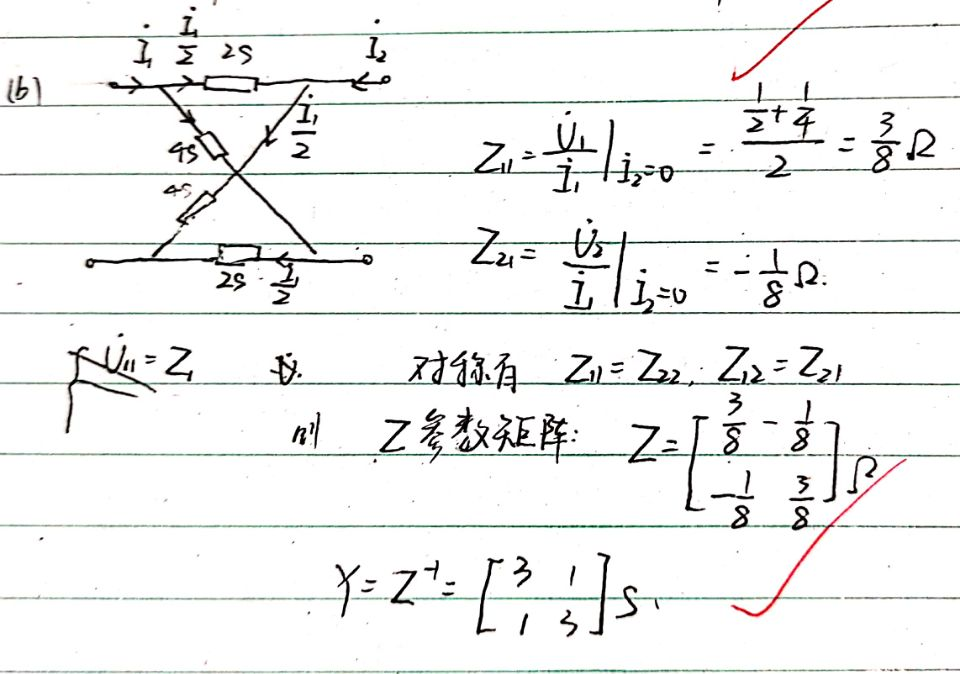 (b)
İ₁ İ₁/2 2S İ₂
4S İ₁/2
4S
2S İ₁/2
Z₁₁ = U̇₁/İ₁ | İ₂=0 = (1/2 + 1/4)/2 = 3/8 Ω
Z₂₁ = U̇₂/İ₁ | İ₂=0 = -1/8 Ω.
U̇₁₁ = Z₁ 对称有 Z₁₁ = Z₂₂, Z₁₂ = Z₂₁
则 Z参数矩阵: Z = [3/8 -1/8
-1/8 3/8] Ω
Y = Z⁻¹ = [3 1
1 3] S.